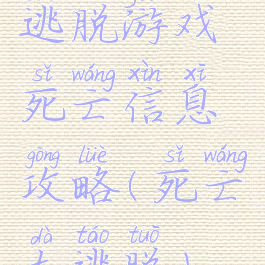 逃脱游戏
sǐ wáng xìn xī
死亡信息
gōng lüè sǐ wáng
攻略(死亡
dà táo tuō
大逃脱)